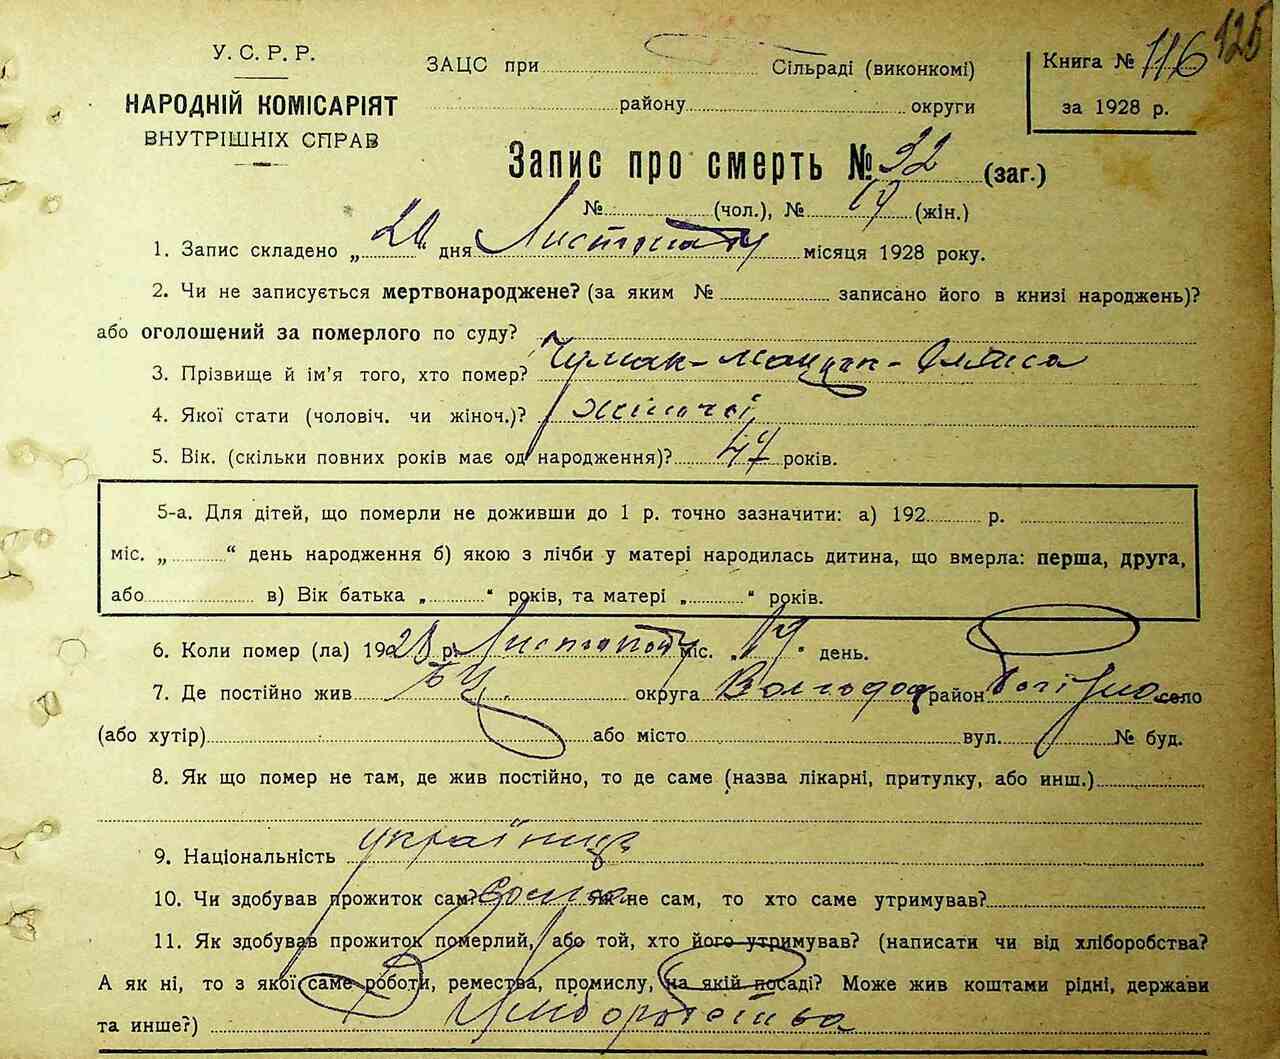 У. С. Р. Р.
НАРОДНІЙ КОМІСАРІЯТ
ВНУТРІШНІХ СПРАВ
ЗАЦС при Сільраді (виконкомі)
району округи
Книга № 116 125
за 1928 р.
Запис про смерть № 32 (заг.)
№ (чол.), № (жін.)
1. Запис складено „20“ дня Листопаду місяця 1928 року.
2. Чи не записується мертвонароджене? (за яким № записано його в книзі народжень)?
або оголошений за померлого по суду?
3. Прізвище й ім'я того, хто помер? Чумак-
4. Якої стати (чоловіч. чи жіноч.)? жіночої
5. Вік. (скільки повних років має од народження)? 47 років.
5-а. Для дітей, що померли не доживши до 1 р. точно зазначити: а) 192 р.
міс. „ “ день народження б) якою з лічби у матері народилась дитина, що вмерла: перша, друга,
або в) Вік батька „ “ років, та матері „ “ років.
6. Коли помер (ла) 1928 р. Листопаду міс. „19“ день.
7. Де постійно жив БЦ. округа район село
(або хутір) або місто вул. № буд.
8. Як що помер не там, де жив постійно, то де саме (назва лікарні, притулку, або инш.)
9. Національність українка
10. Чи здобував прожиток сам? Сама Як не сам, то хто саме утримував?
11. Як здобував прожиток померлий, або той, хто його утримував? (написати чи від хліборобства?
А як ні, то з якої саме роботи, ремества, промислу, на якій посаді? Може жив коштами рідні, держави
та инше?) Хліборобства